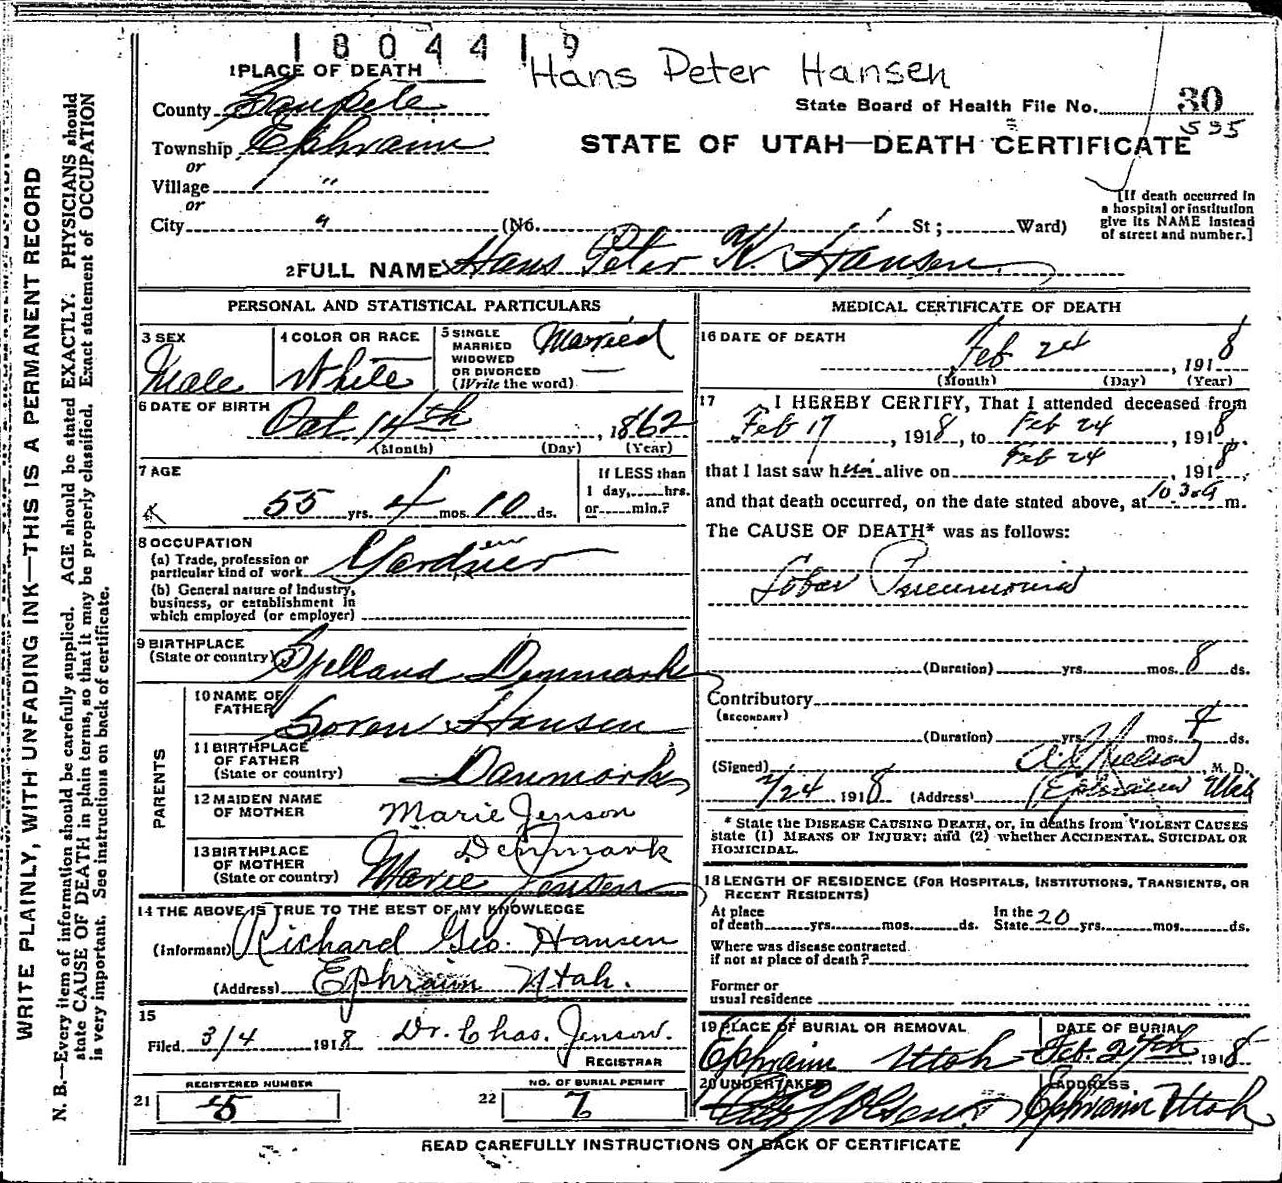 1804419
Hans Peter Hansen
1 PLACE OF DEATH
County Sanpete
State Board of Health File No. 30
535
Township Ephraim
STATE OF UTAH—DEATH CERTIFICATE
or
Village "
or
City " (No. St; Ward)
[If death occurred in
a hospital or institution
give its NAME instead
of street and number.]
2 FULL NAME Hans Peter K. Hansen
PERSONAL AND STATISTICAL PARTICULARS
3 SEX
Male
4 COLOR OR RACE
White
5 SINGLE
MARRIED
WIDOWED
OR DIVORCED
(Write the word)
Married
6 DATE OF BIRTH Oct 14th, 1862
(Month) (Day) (Year)
7 AGE
55 yrs. 4 mos. 10 ds.
If LESS than
1 day,.....hrs.
or.....min.?
8 OCCUPATION
(a) Trade, profession or
particular kind of work Gardnier
(b) General nature of Industry,
business, or establishment in
which employed (or employer)
9 BIRTHPLACE
(State or country) Denmark
PARENTS
10 NAME OF
FATHER Soren Hansen
11 BIRTHPLACE
OF FATHER
(State or country) Danmark
12 MAIDEN NAME
OF MOTHER Marie Jenson
13 BIRTHPLACE
OF MOTHER
(State or country) Denmark
Marie Jensen
14 THE ABOVE IS TRUE TO THE BEST OF MY KNOWLEDGE
(Informant) Richard Geo. Hansen
(Address) Ephraim Utah.
15
Filed 3/4 1918 Dr. Chas. Jenson.
REGISTRAR
REGISTERED NUMBER
21 5
NO. OF BURIAL PERMIT
22 7
MEDICAL CERTIFICATE OF DEATH
16 DATE OF DEATH
Feb 24, 1918
(Month) (Day) (Year)
17 I HEREBY CERTIFY, That I attended deceased from
Feb 17, 1918, to Feb 24, 1918.
that I last saw him alive on Feb 24, 1918.
and that death occurred, on the date stated above, at 10.30 A m.
The CAUSE OF DEATH* was as follows:
Lobar Pneumonia
(Duration) yrs. mos. 8 ds.
Contributory
(SECONDARY)
(Duration) yrs. mos. 4 ds.
(Signed) Nielson, M. D.
2/24 1918 (Address) Ephraim Utah
* State the DISEASE CAUSING DEATH, or, in deaths from VIOLENT CAUSES
state (1) MEANS OF INJURY; and (2) whether ACCIDENTAL, SUICIDAL or
HOMICIDAL.
18 LENGTH OF RESIDENCE (FOR HOSPITALS, INSTITUTIONS, TRANSIENTS, OR
RECENT RESIDENTS)
At place
of death yrs. mos. ds.
In the
State 20 yrs. mos. ds.
Where was disease contracted
if not at place of death?
Former or
usual residence
19 PLACE OF BURIAL OR REMOVAL
Ephraim Utah
DATE OF BURIAL
Feb. 27th 1918
20 UNDERTAKER
Olsen
ADDRESS
Ephraim Utah
READ CAREFULLY INSTRUCTIONS ON BACK OF CERTIFICATE
WRITE PLAINLY, WITH UNFADING INK—THIS IS A PERMANENT RECORD
N. B.—Every item of information should be carefully supplied. AGE should be stated EXACTLY. PHYSICIANS should
state CAUSE OF DEATH in plain terms, so that it may be properly classified. Exact statement of OCCUPATION
is very important. See instructions on back of certificate.